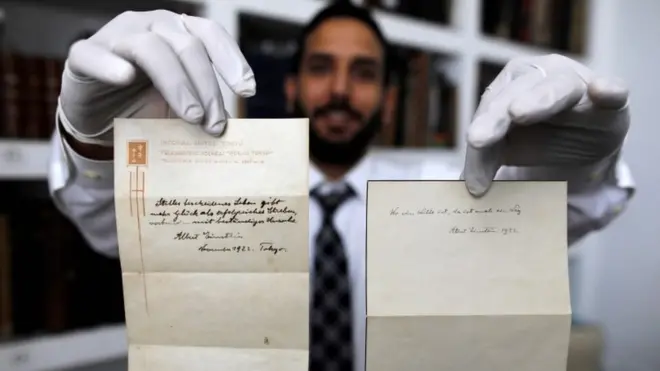 Stilles bescheidenes Leben gibt
mehr Glück als erfolgreiches Streben,
verbunden mit beständiger Unruhe.
Albert Einstein.
November 1922. Tokyo.
Wo ein Wille ist, da ist auch ein Weg
Albert Einstein. 1922.